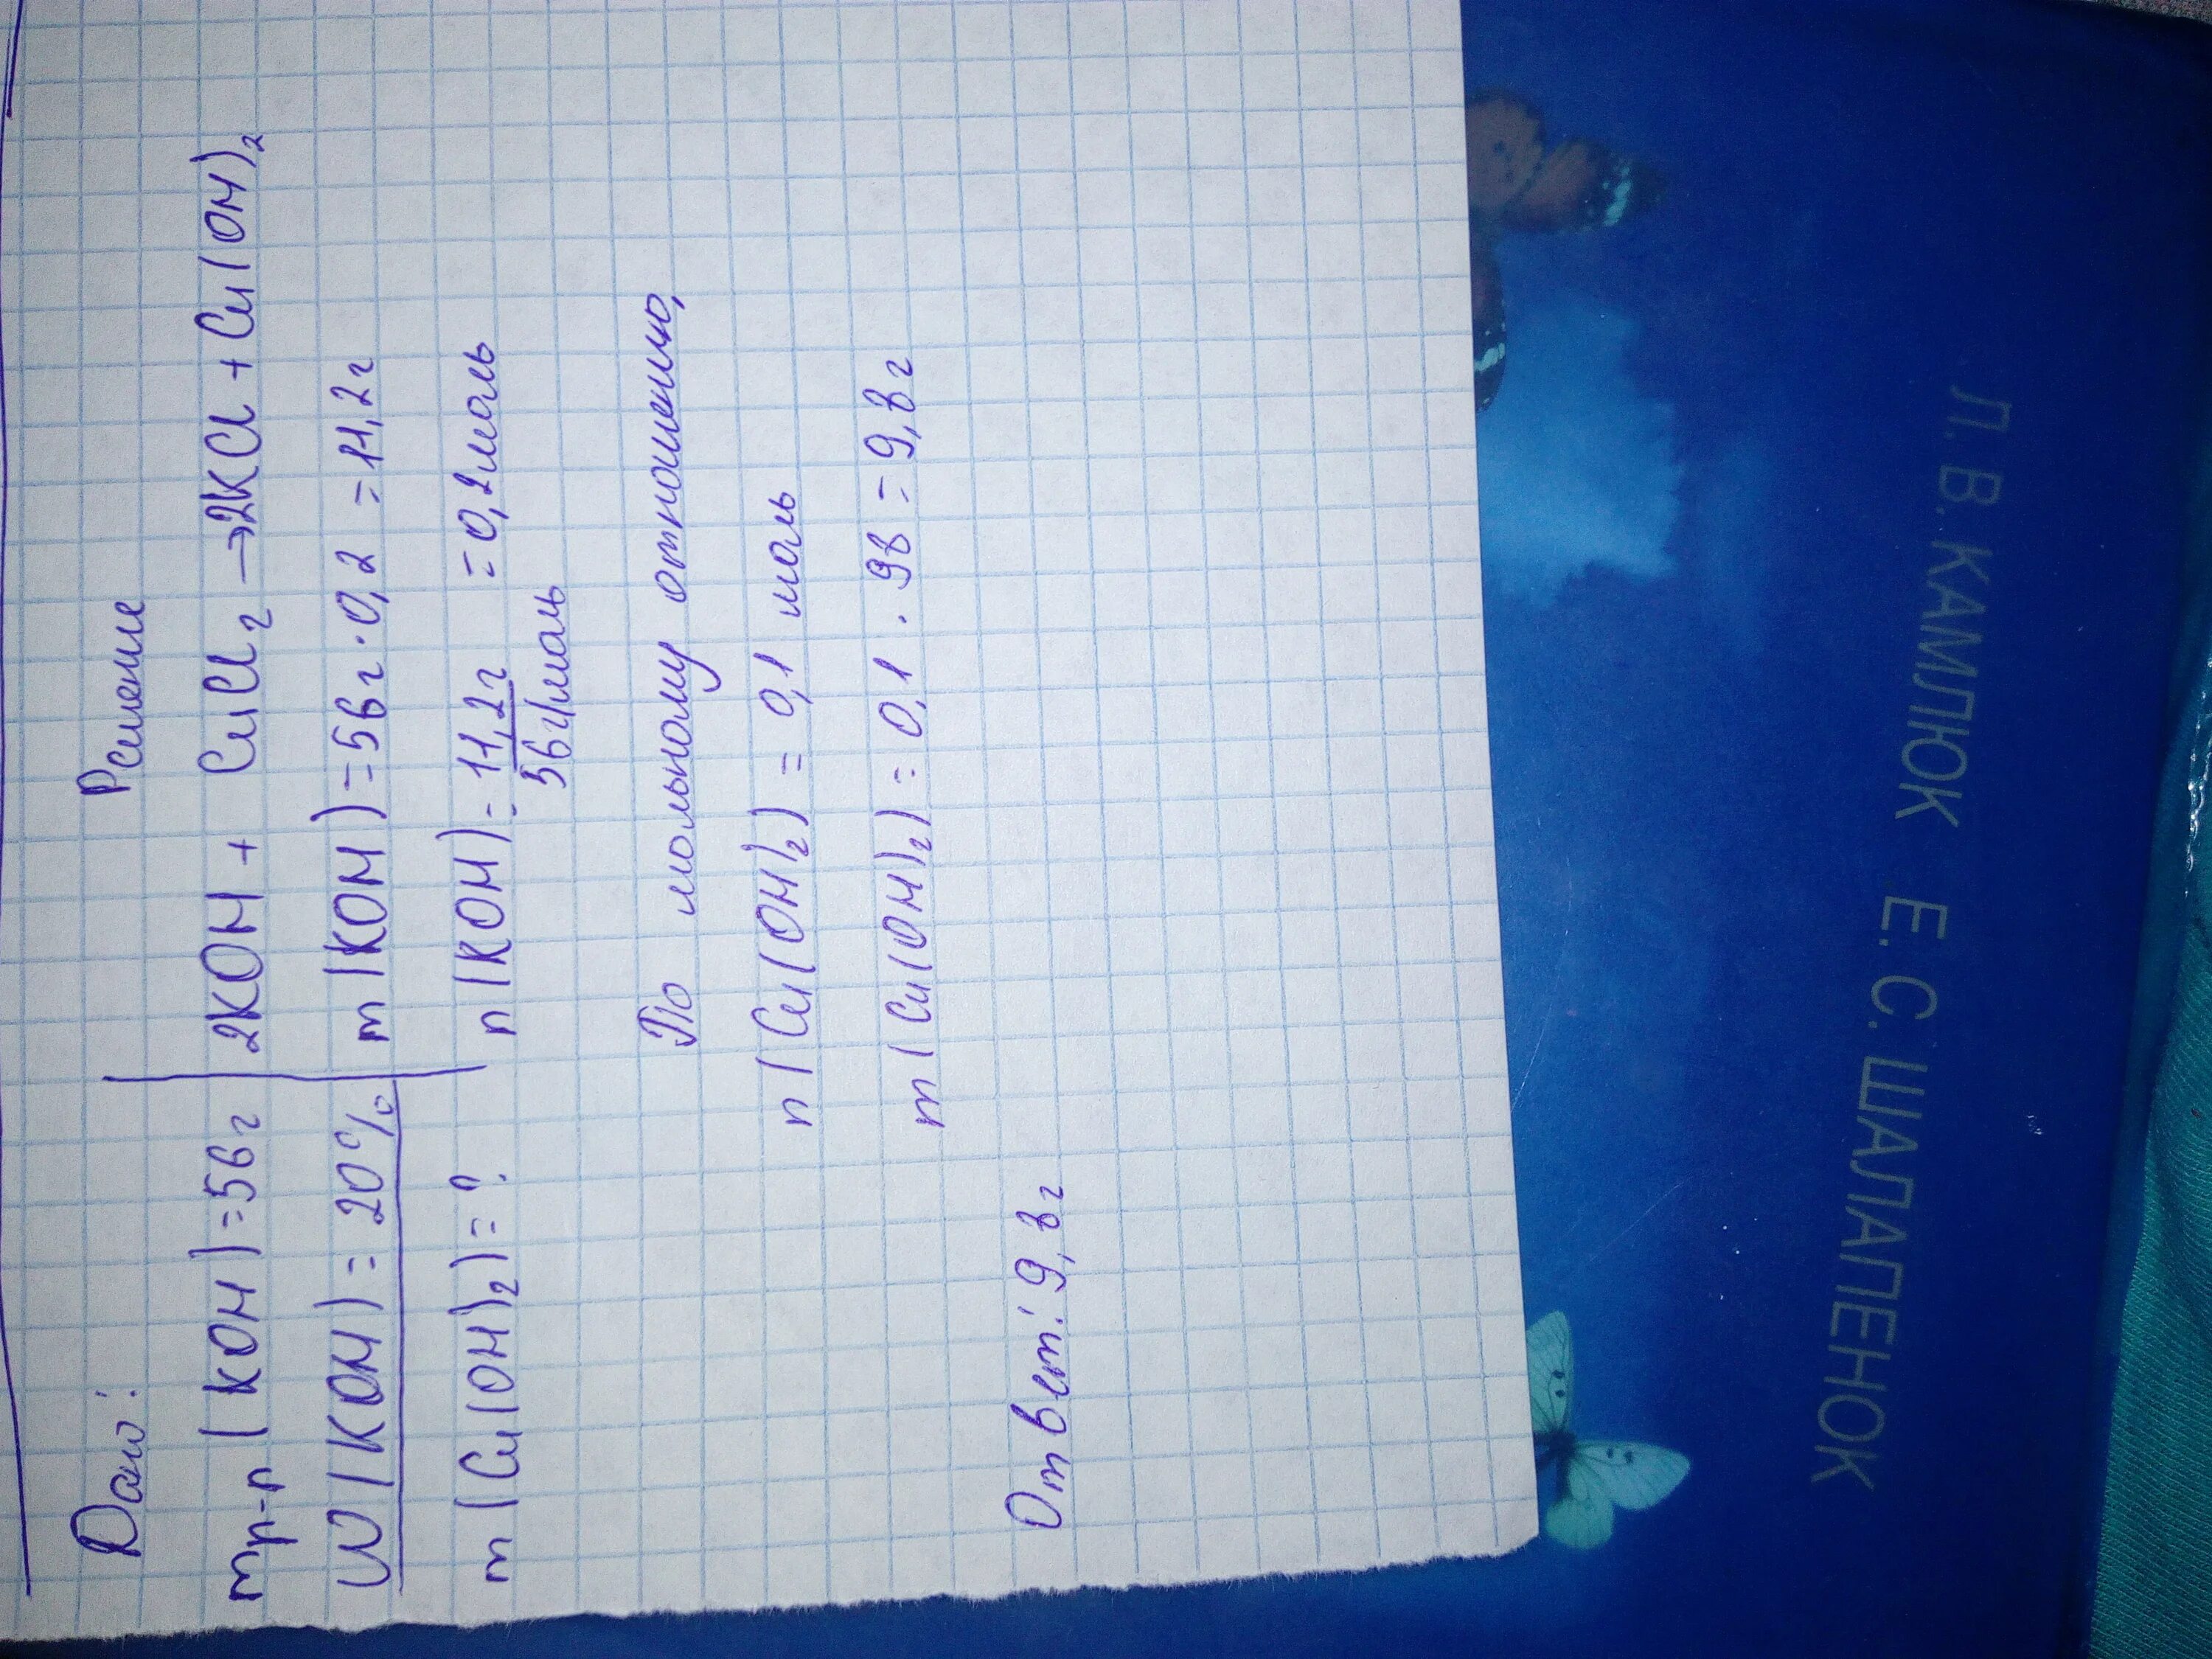 Дано:
Решение
mр-р (KOH) = 56г
2KOH + CuCl2 → 2KCl + Cu(OH)2
W(KOH) = 20%
m(KOH) = 56г · 0,2 = 11,2г
m(Cu(OH)2) = ?
n(KOH) = 11,2г = 0,2моль
56г/моль
По мольному отношению,
n(Cu(OH)2) = 0,1 моль
m(Cu(OH)2) = 0,1 · 98 = 9,8г
Ответ: 9,8г
Л. В. КАМЛЮК Е. С. ШАЛАПЕНОК